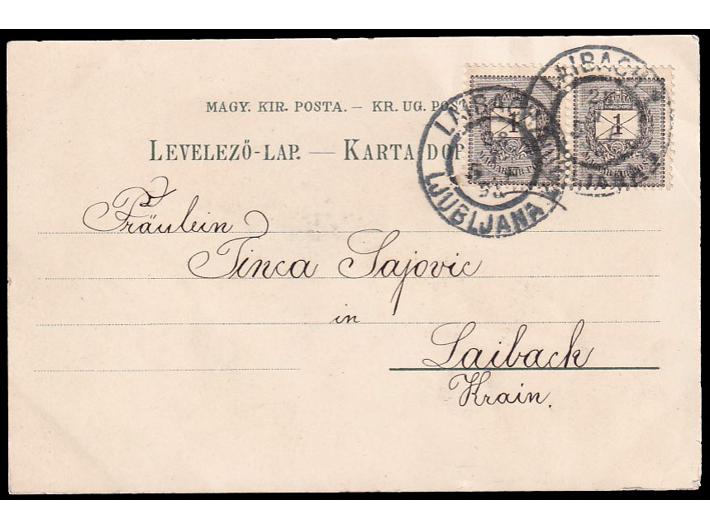 MAGY. KIR. POSTA. — KR. UG.
LEVELEZŐ-LAP. — KARTA DOP
LAIBACH
LJUBLJANA
1
LAIBACH
1
Fräulein
Tinca Sajovic
in
Laibach
Krain.